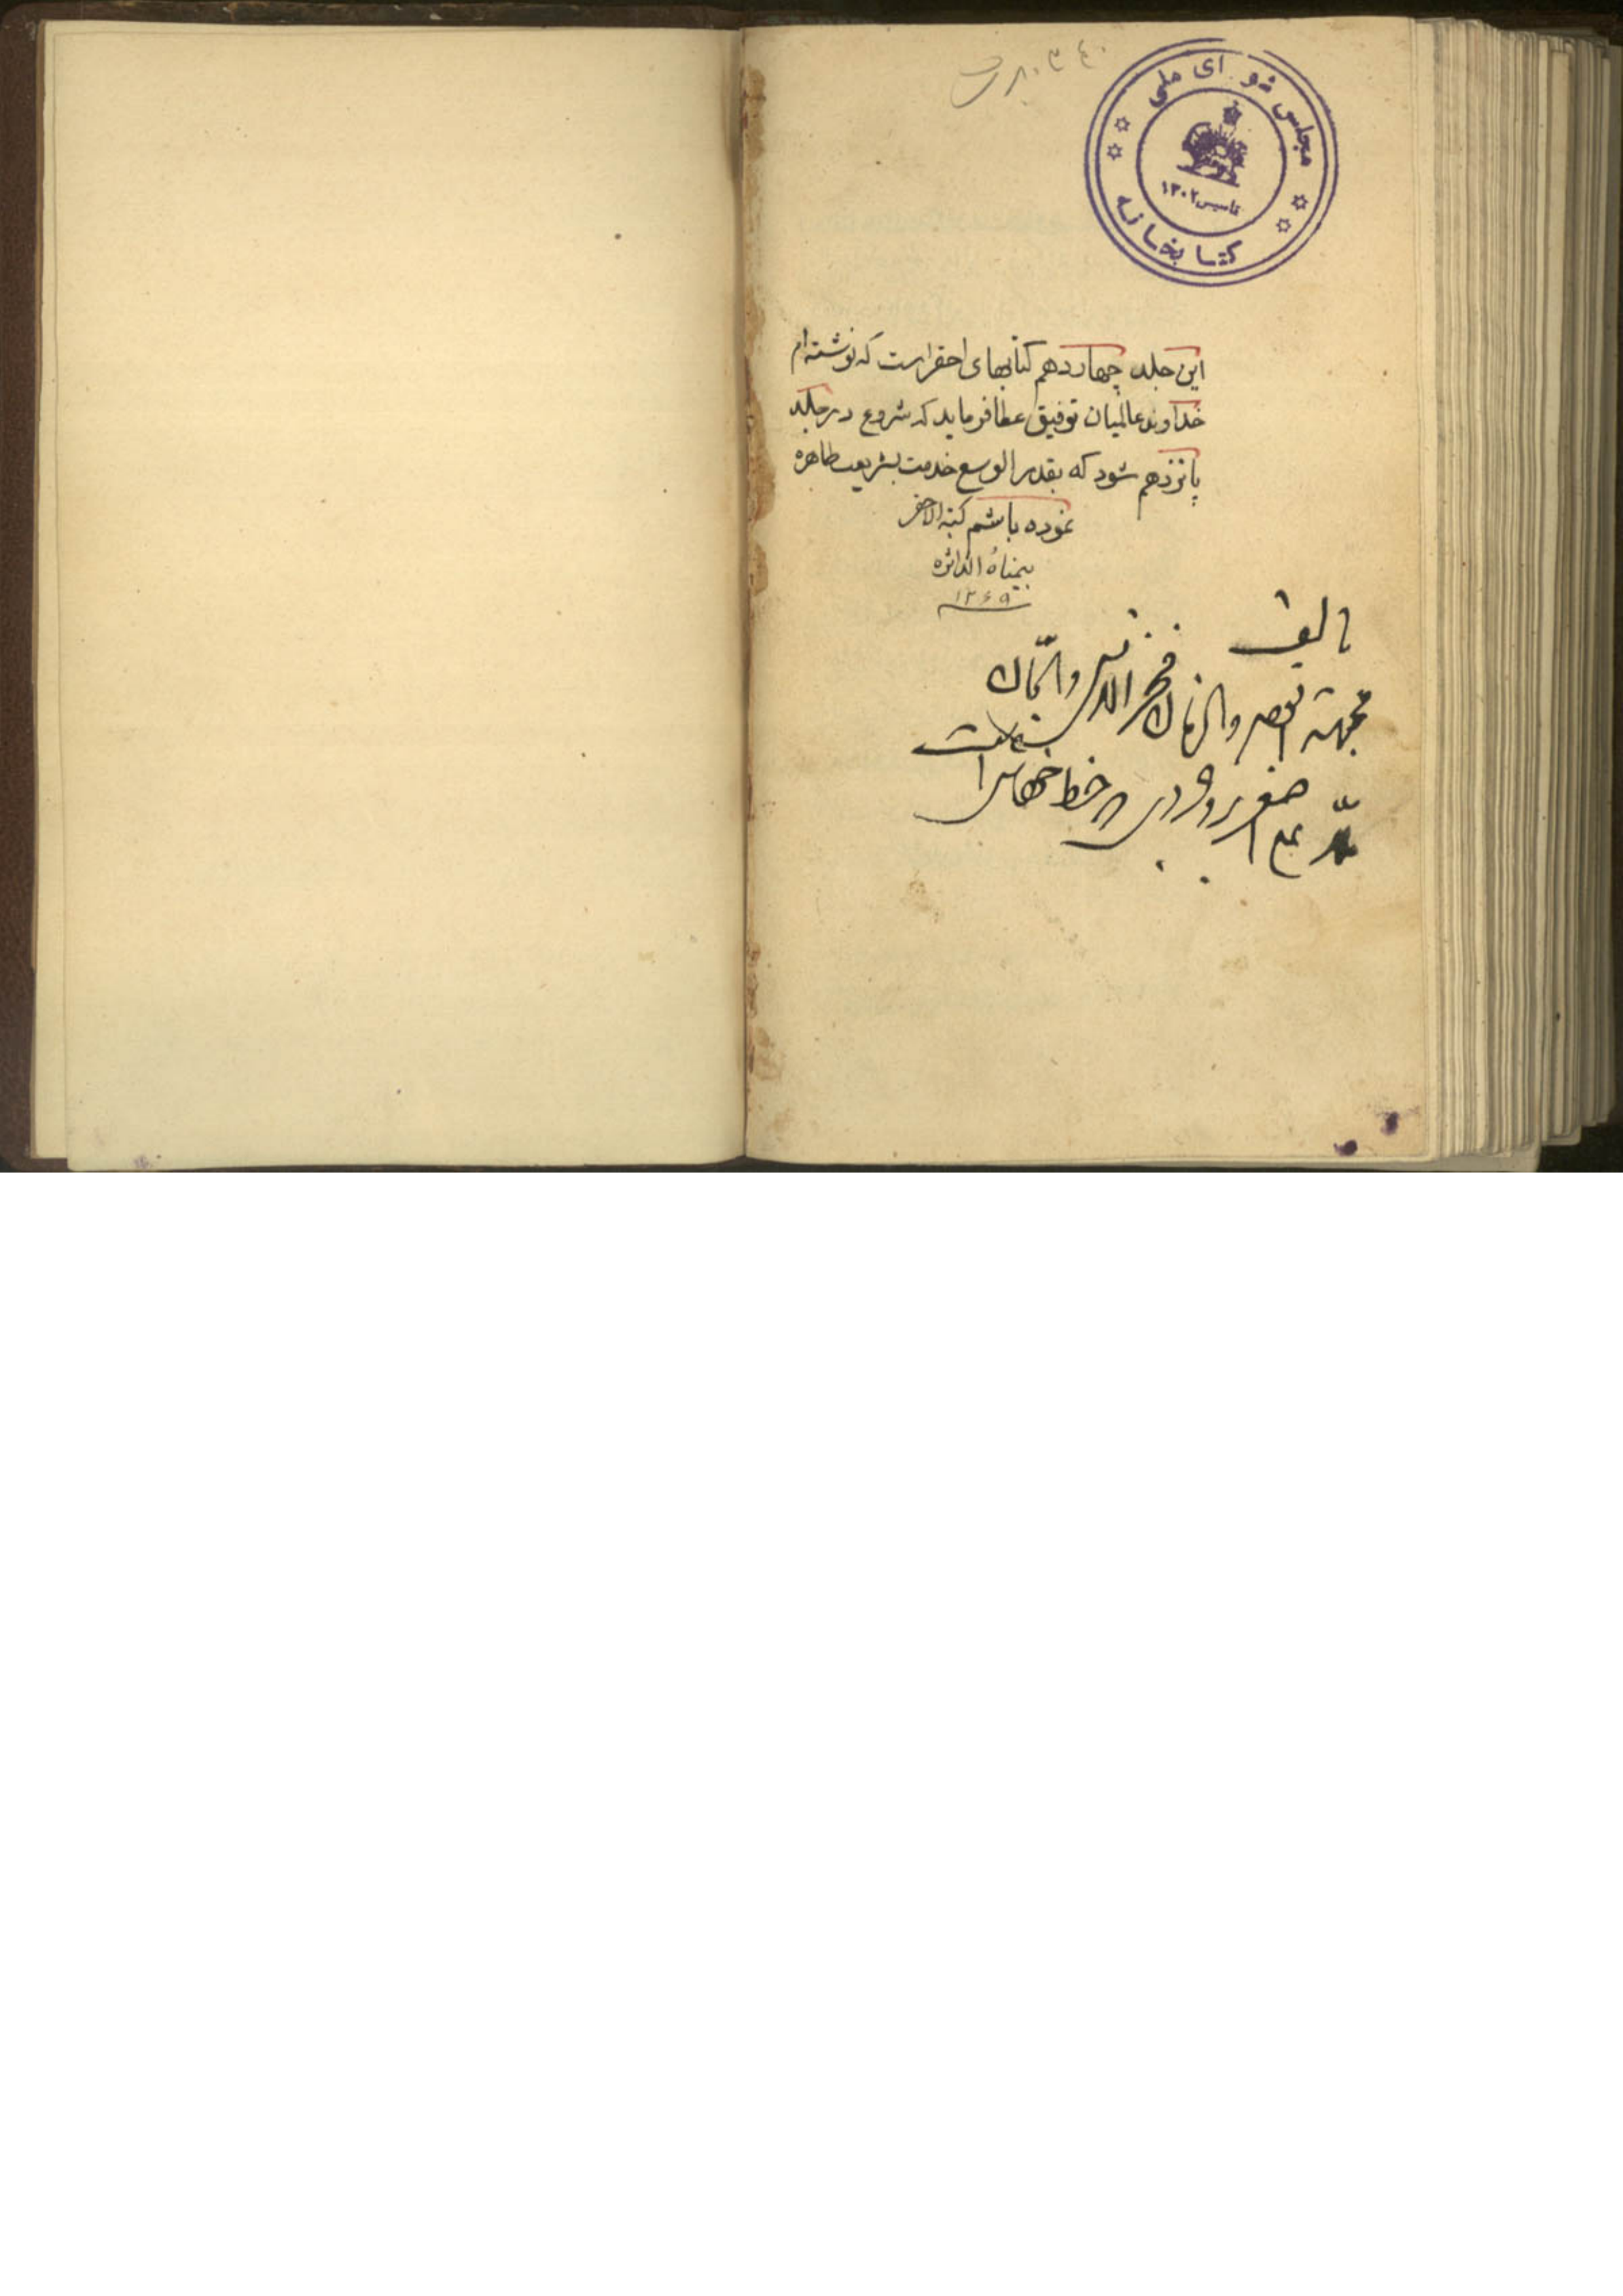 مجلس شورای ملی
تاسیس ۱۳۰۲
کتابخانه
این جلد چهاردهم کتابهای احقر است که نوشته‌ام
خداوند عالمیان توفیق عطا فرماید که شروع در جلد
پانزدهم شود که بقدر الوسع خدمت بشریعت طاهره
نموده باشم کتبه الاحقر
بیمناه الداثره
۱۲۶۹
تالیف
مجتهد العصر والزمان فخر
علی اصغر بروجردی خط